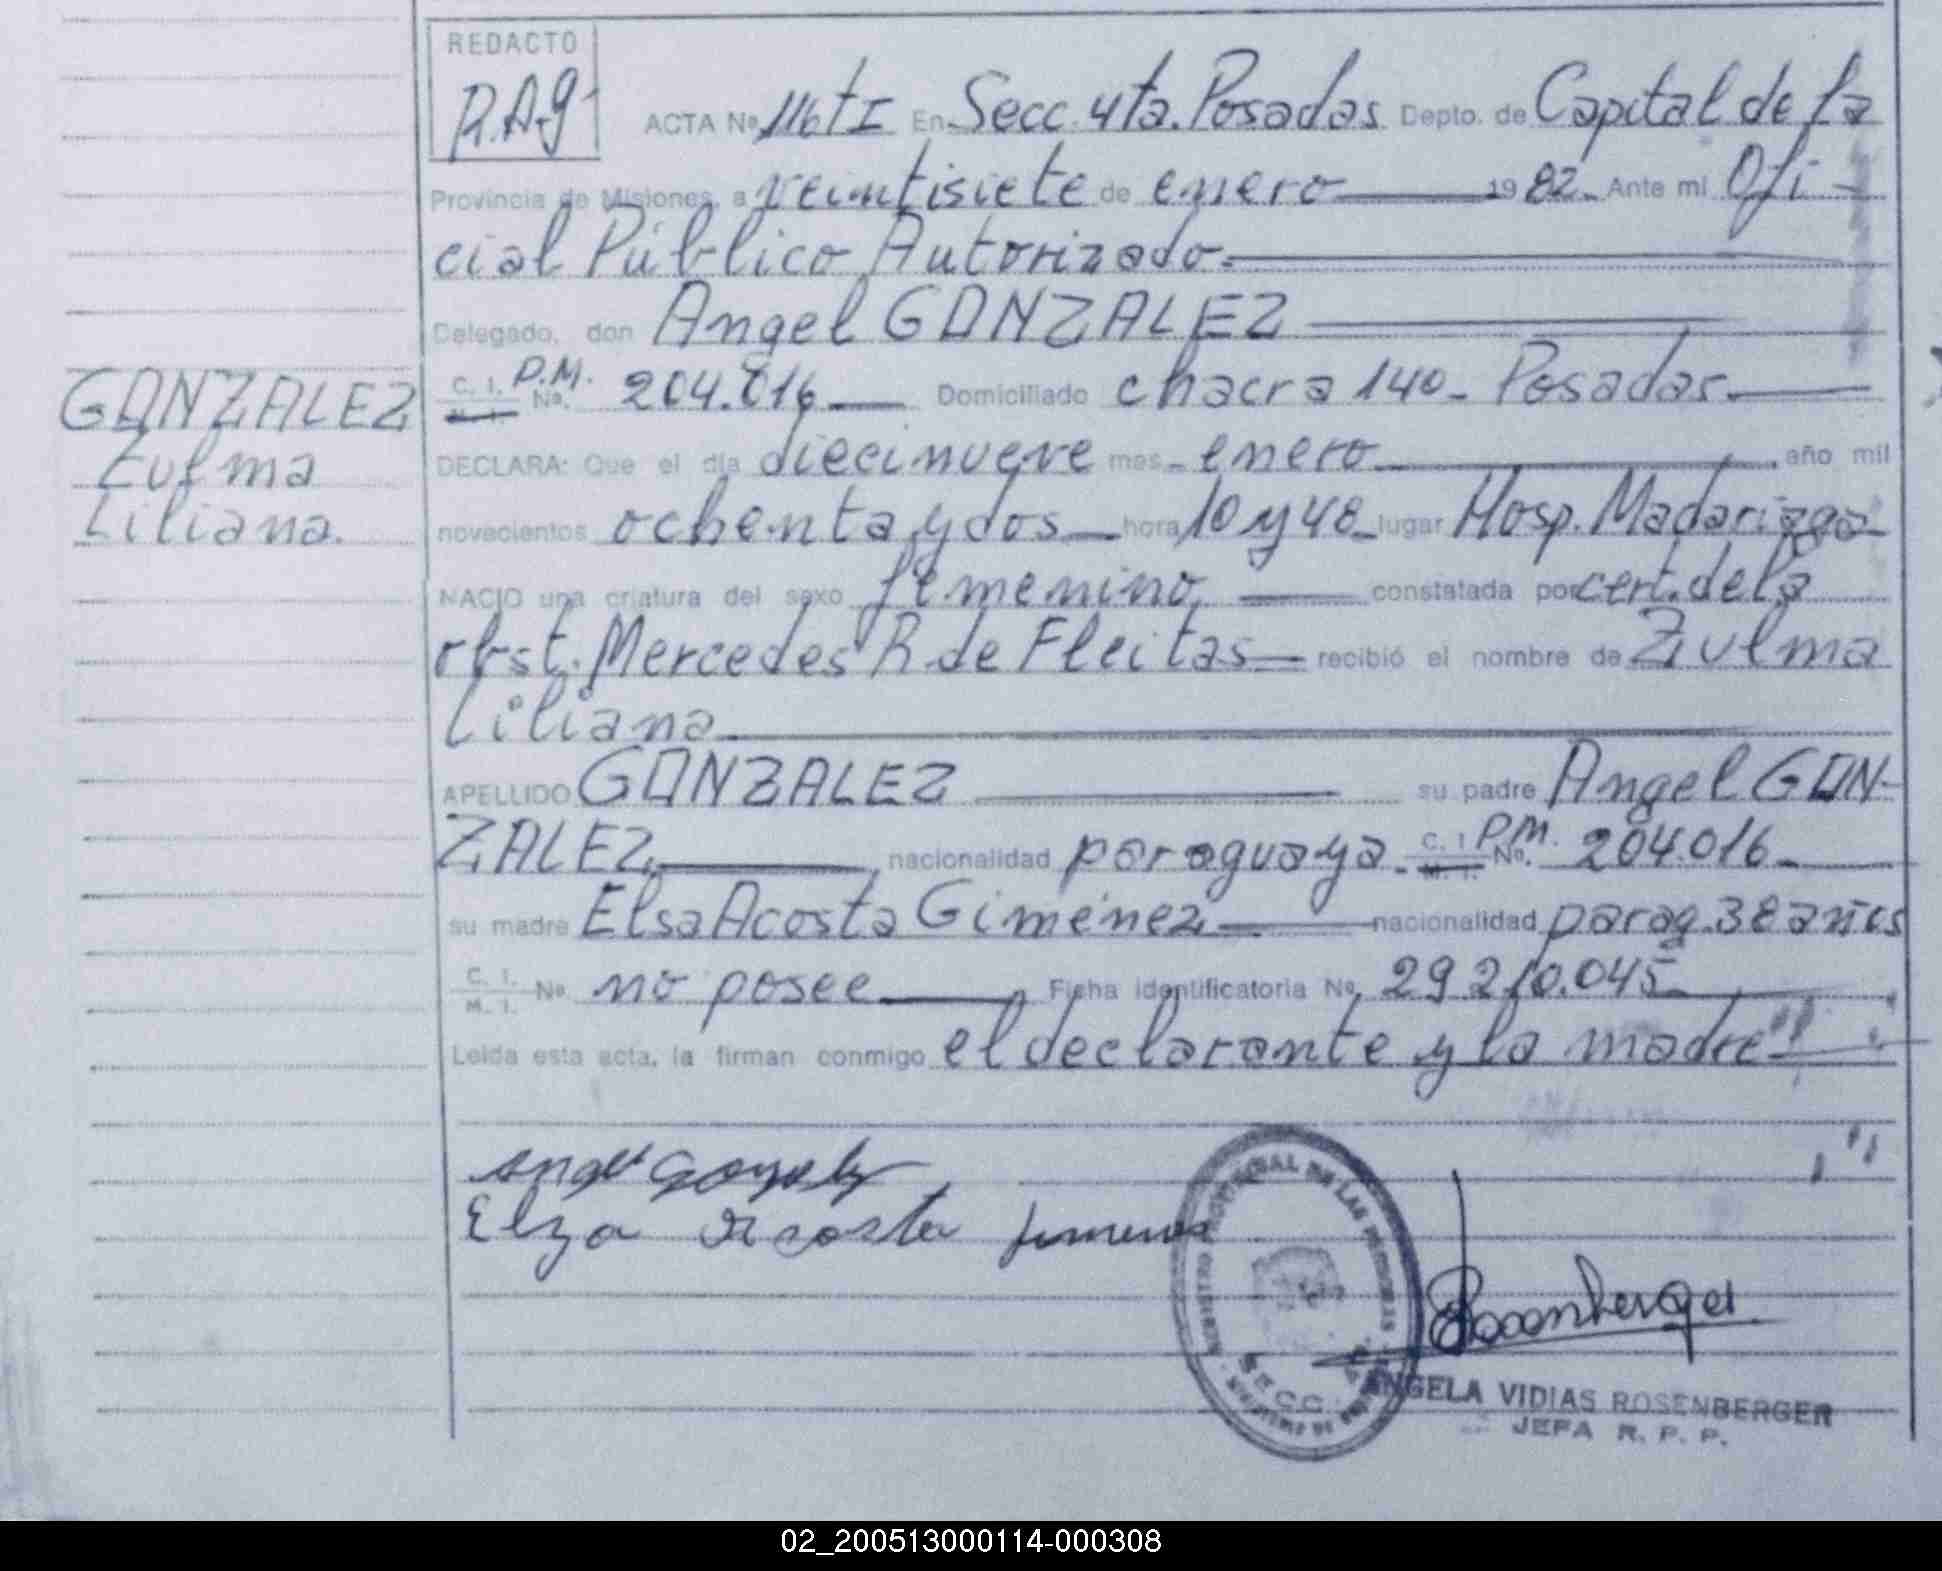 REDACTO
R.A.g
ACTA Nº 116 tI En Secc. 4ta. Posadas Depto. de Capital de la
Provincia de Misiones, a veintisiete de enero 1982. Ante mi Ofi-
cial Público Autorizado.
Delegado, don Angel GONZALEZ
C. I. M. I. D.M. Nº. 204.016 Domiciliado chacra 140- Posadas.
GONZALEZ
Zulma
Liliana.
DECLARA: Que el día diecinueve mes enero año mil
novecientos ochenta y dos hora 10 y 48 lugar Hosp. Madariaga
NACIO una criatura del sexo femenino constatada por cert. de la
obst. Mercedes R. de Fleitas recibió el nombre de Zulma
Liliana
APELLIDO GONZALEZ su padre Angel GON-
ZALEZ nacionalidad paraguaya C. I. M. I. D.M. Nº. 204.016
su madre Elsa Acosta Giménez nacionalidad parag. 38 años
C. I. M. I. Nº. no posee Ficha identificatoria Nº 29210.045
Leída esta acta, la firman conmigo el declarante y la madre
Angel Gonzalez
Elza Acosta Jimenez
PROVINCIAL DE LAS PERSONAS
SECC.
Rosenberger
ANGELA VIDIAS ROSENBERGER
JEFA R. P. P.
02_200513000114-000308